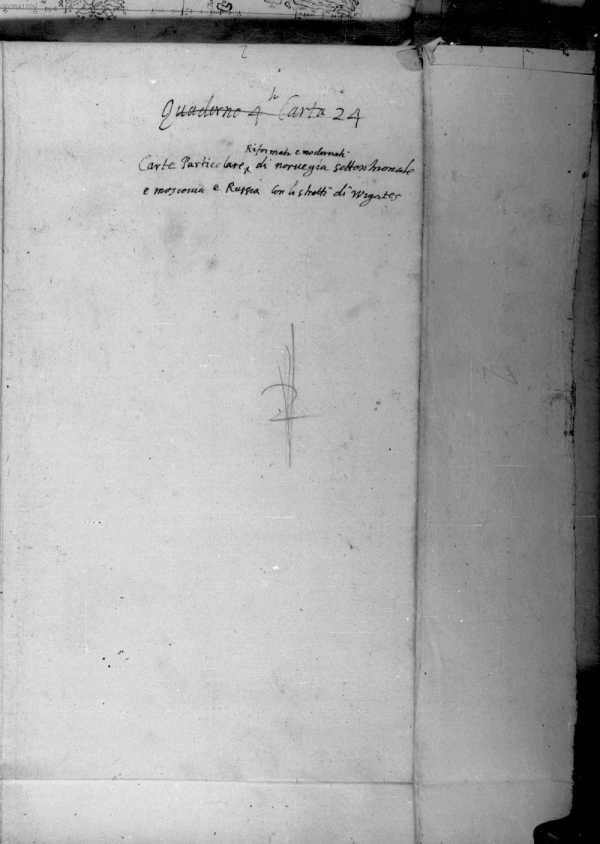 Quaderno 4to Carta 24
Riformate e modernati
Carte Particolare di noruegia settentrionale
e moscouia e Russia con li stretti di Wygates